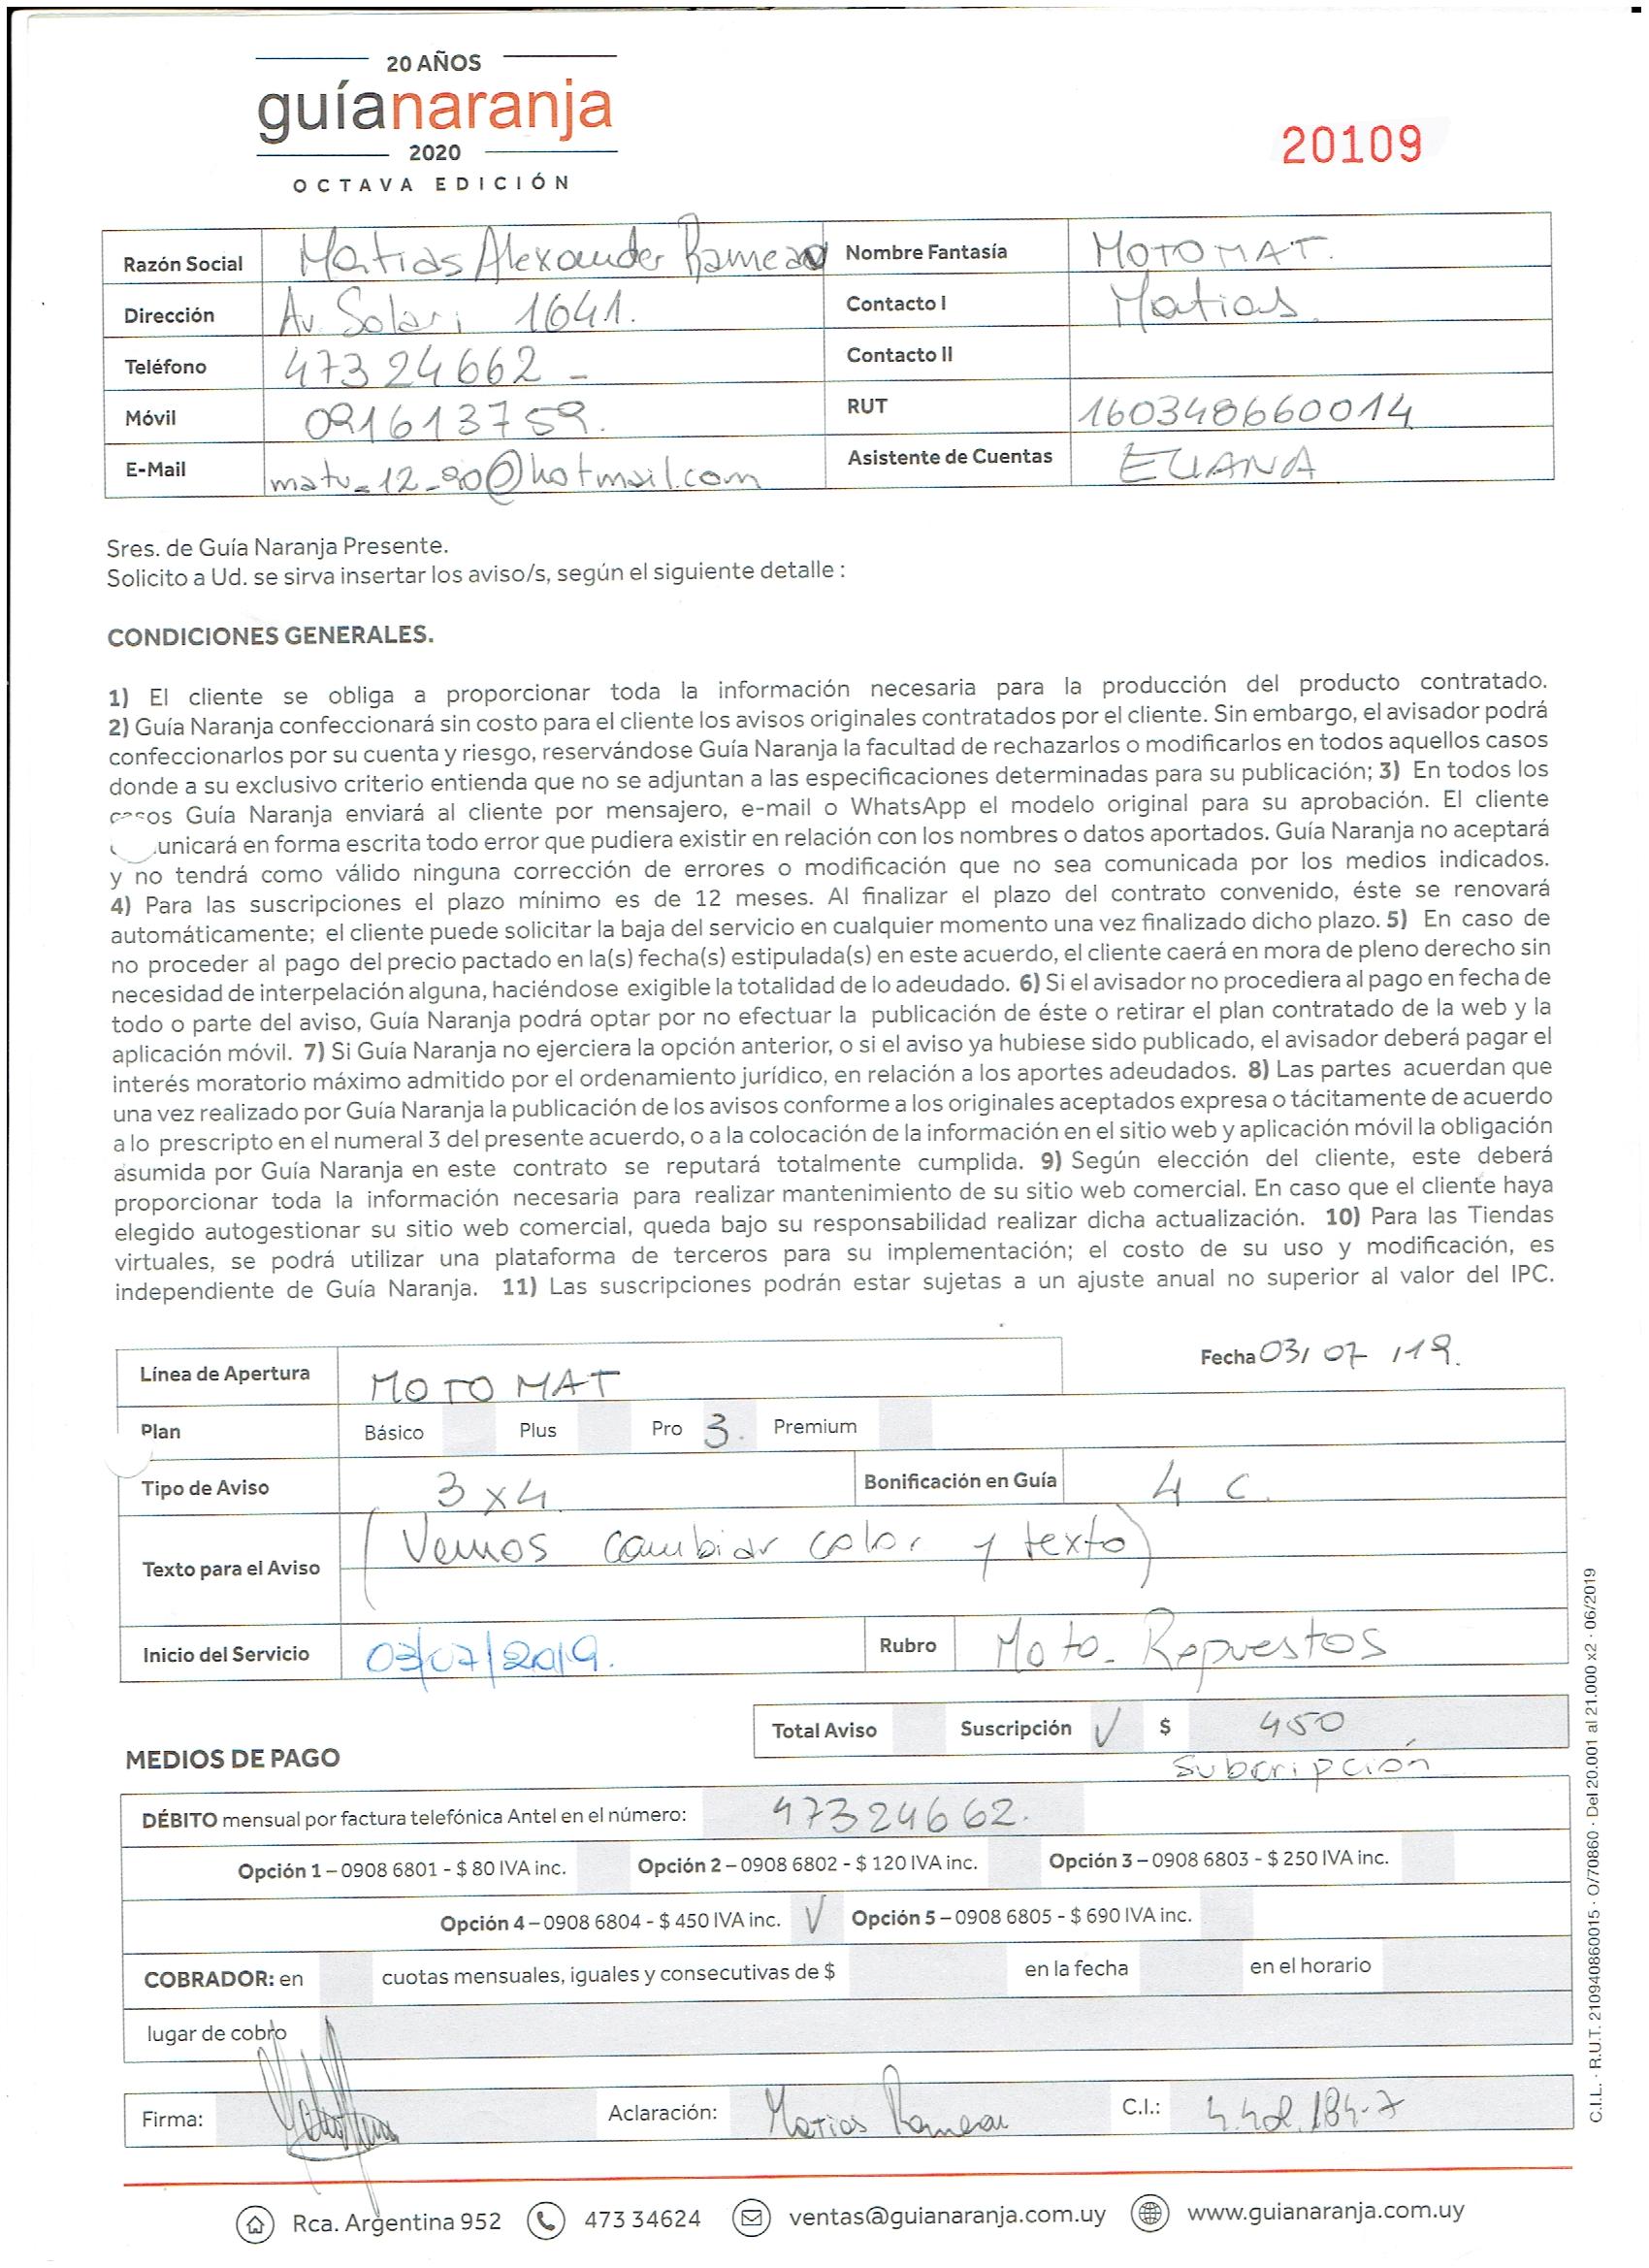 20 AÑOS
guíanaranja
2020
OCTAVA EDICIÓN
20109
Razón Social Matias Alexander Rameau Nombre Fantasía MOTOMAT.
Dirección Av Solari 1641. Contacto I Matias.
Teléfono 47324662 - Contacto II
Móvil 091613759. RUT 160348660014
E-Mail matu_12_90@hotmail.com Asistente de Cuentas ELIANA
Sres. de Guía Naranja Presente.
Solicito a Ud. se sirva insertar los aviso/s, según el siguiente detalle :
CONDICIONES GENERALES.
1) El cliente se obliga a proporcionar toda la información necesaria para la producción del producto contratado.
2) Guía Naranja confeccionará sin costo para el cliente los avisos originales contratados por el cliente. Sin embargo, el avisador podrá
confeccionarlos por su cuenta y riesgo, reservándose Guía Naranja la facultad de rechazarlos o modificarlos en todos aquellos casos
donde a su exclusivo criterio entienda que no se adjuntan a las especificaciones determinadas para su publicación; 3) En todos los
casos Guía Naranja enviará al cliente por mensajero, e-mail o WhatsApp el modelo original para su aprobación. El cliente
unicará en forma escrita todo error que pudiera existir en relación con los nombres o datos aportados. Guía Naranja no aceptará
y no tendrá como válido ninguna corrección de errores o modificación que no sea comunicada por los medios indicados.
4) Para las suscripciones el plazo mínimo es de 12 meses. Al finalizar el plazo del contrato convenido, éste se renovará
automáticamente; el cliente puede solicitar la baja del servicio en cualquier momento una vez finalizado dicho plazo. 5) En caso de
no proceder al pago del precio pactado en la(s) fecha(s) estipulada(s) en este acuerdo, el cliente caerá en mora de pleno derecho sin
necesidad de interpelación alguna, haciéndose exigible la totalidad de lo adeudado. 6) Si el avisador no procediera al pago en fecha de
todo o parte del aviso, Guía Naranja podrá optar por no efectuar la publicación de éste o retirar el plan contratado de la web y la
aplicación móvil. 7) Si Guía Naranja no ejerciera la opción anterior, o si el aviso ya hubiese sido publicado, el avisador deberá pagar el
interés moratorio máximo admitido por el ordenamiento jurídico, en relación a los aportes adeudados. 8) Las partes acuerdan que
una vez realizado por Guía Naranja la publicación de los avisos conforme a los originales aceptados expresa o tácitamente de acuerdo
a lo prescripto en el numeral 3 del presente acuerdo, o a la colocación de la información en el sitio web y aplicación móvil la obligación
asumida por Guía Naranja en este contrato se reputará totalmente cumplida. 9) Según elección del cliente, este deberá
proporcionar toda la información necesaria para realizar mantenimiento de su sitio web comercial. En caso que el cliente haya
elegido autogestionar su sitio web comercial, queda bajo su responsabilidad realizar dicha actualización. 10) Para las Tiendas
virtuales, se podrá utilizar una plataforma de terceros para su implementación; el costo de su uso y modificación, es
independiente de Guía Naranja. 11) Las suscripciones podrán estar sujetas a un ajuste anual no superior al valor del IPC.
Fecha 03/ 07 /19.
Línea de Apertura MOTO MAT
Plan Básico Plus Pro 3. Premium
Tipo de Aviso 3 x 4. Bonificación en Guía 4 c.
Texto para el Aviso (Vemos cambiar color y texto)
Inicio del Servicio 03/07/2019. Rubro Moto_ Repuestos
Total Aviso Suscripción ✓ $ 450
subcripción
MEDIOS DE PAGO
DÉBITO mensual por factura telefónica Antel en el número: 47324662.
Opción 1 – 0908 6801 - $ 80 IVA inc. Opción 2 – 0908 6802 - $ 120 IVA inc. Opción 3 – 0908 6803 - $ 250 IVA inc.
Opción 4 – 0908 6804 - $ 450 IVA inc. ✓ Opción 5 – 0908 6805 - $ 690 IVA inc.
COBRADOR: en cuotas mensuales, iguales y consecutivas de $ en la fecha en el horario
lugar de cobro
Firma: Aclaración: Matias Rameau C.I.: 4.408.184-7
Rca. Argentina 952 473 34624 ventas@guianaranja.com.uy www.guianaranja.com.uy
C.I.L. - R.U.T. 210940860015 - O/70860 - Del 20.001 al 21.000 x2 - 06/2019